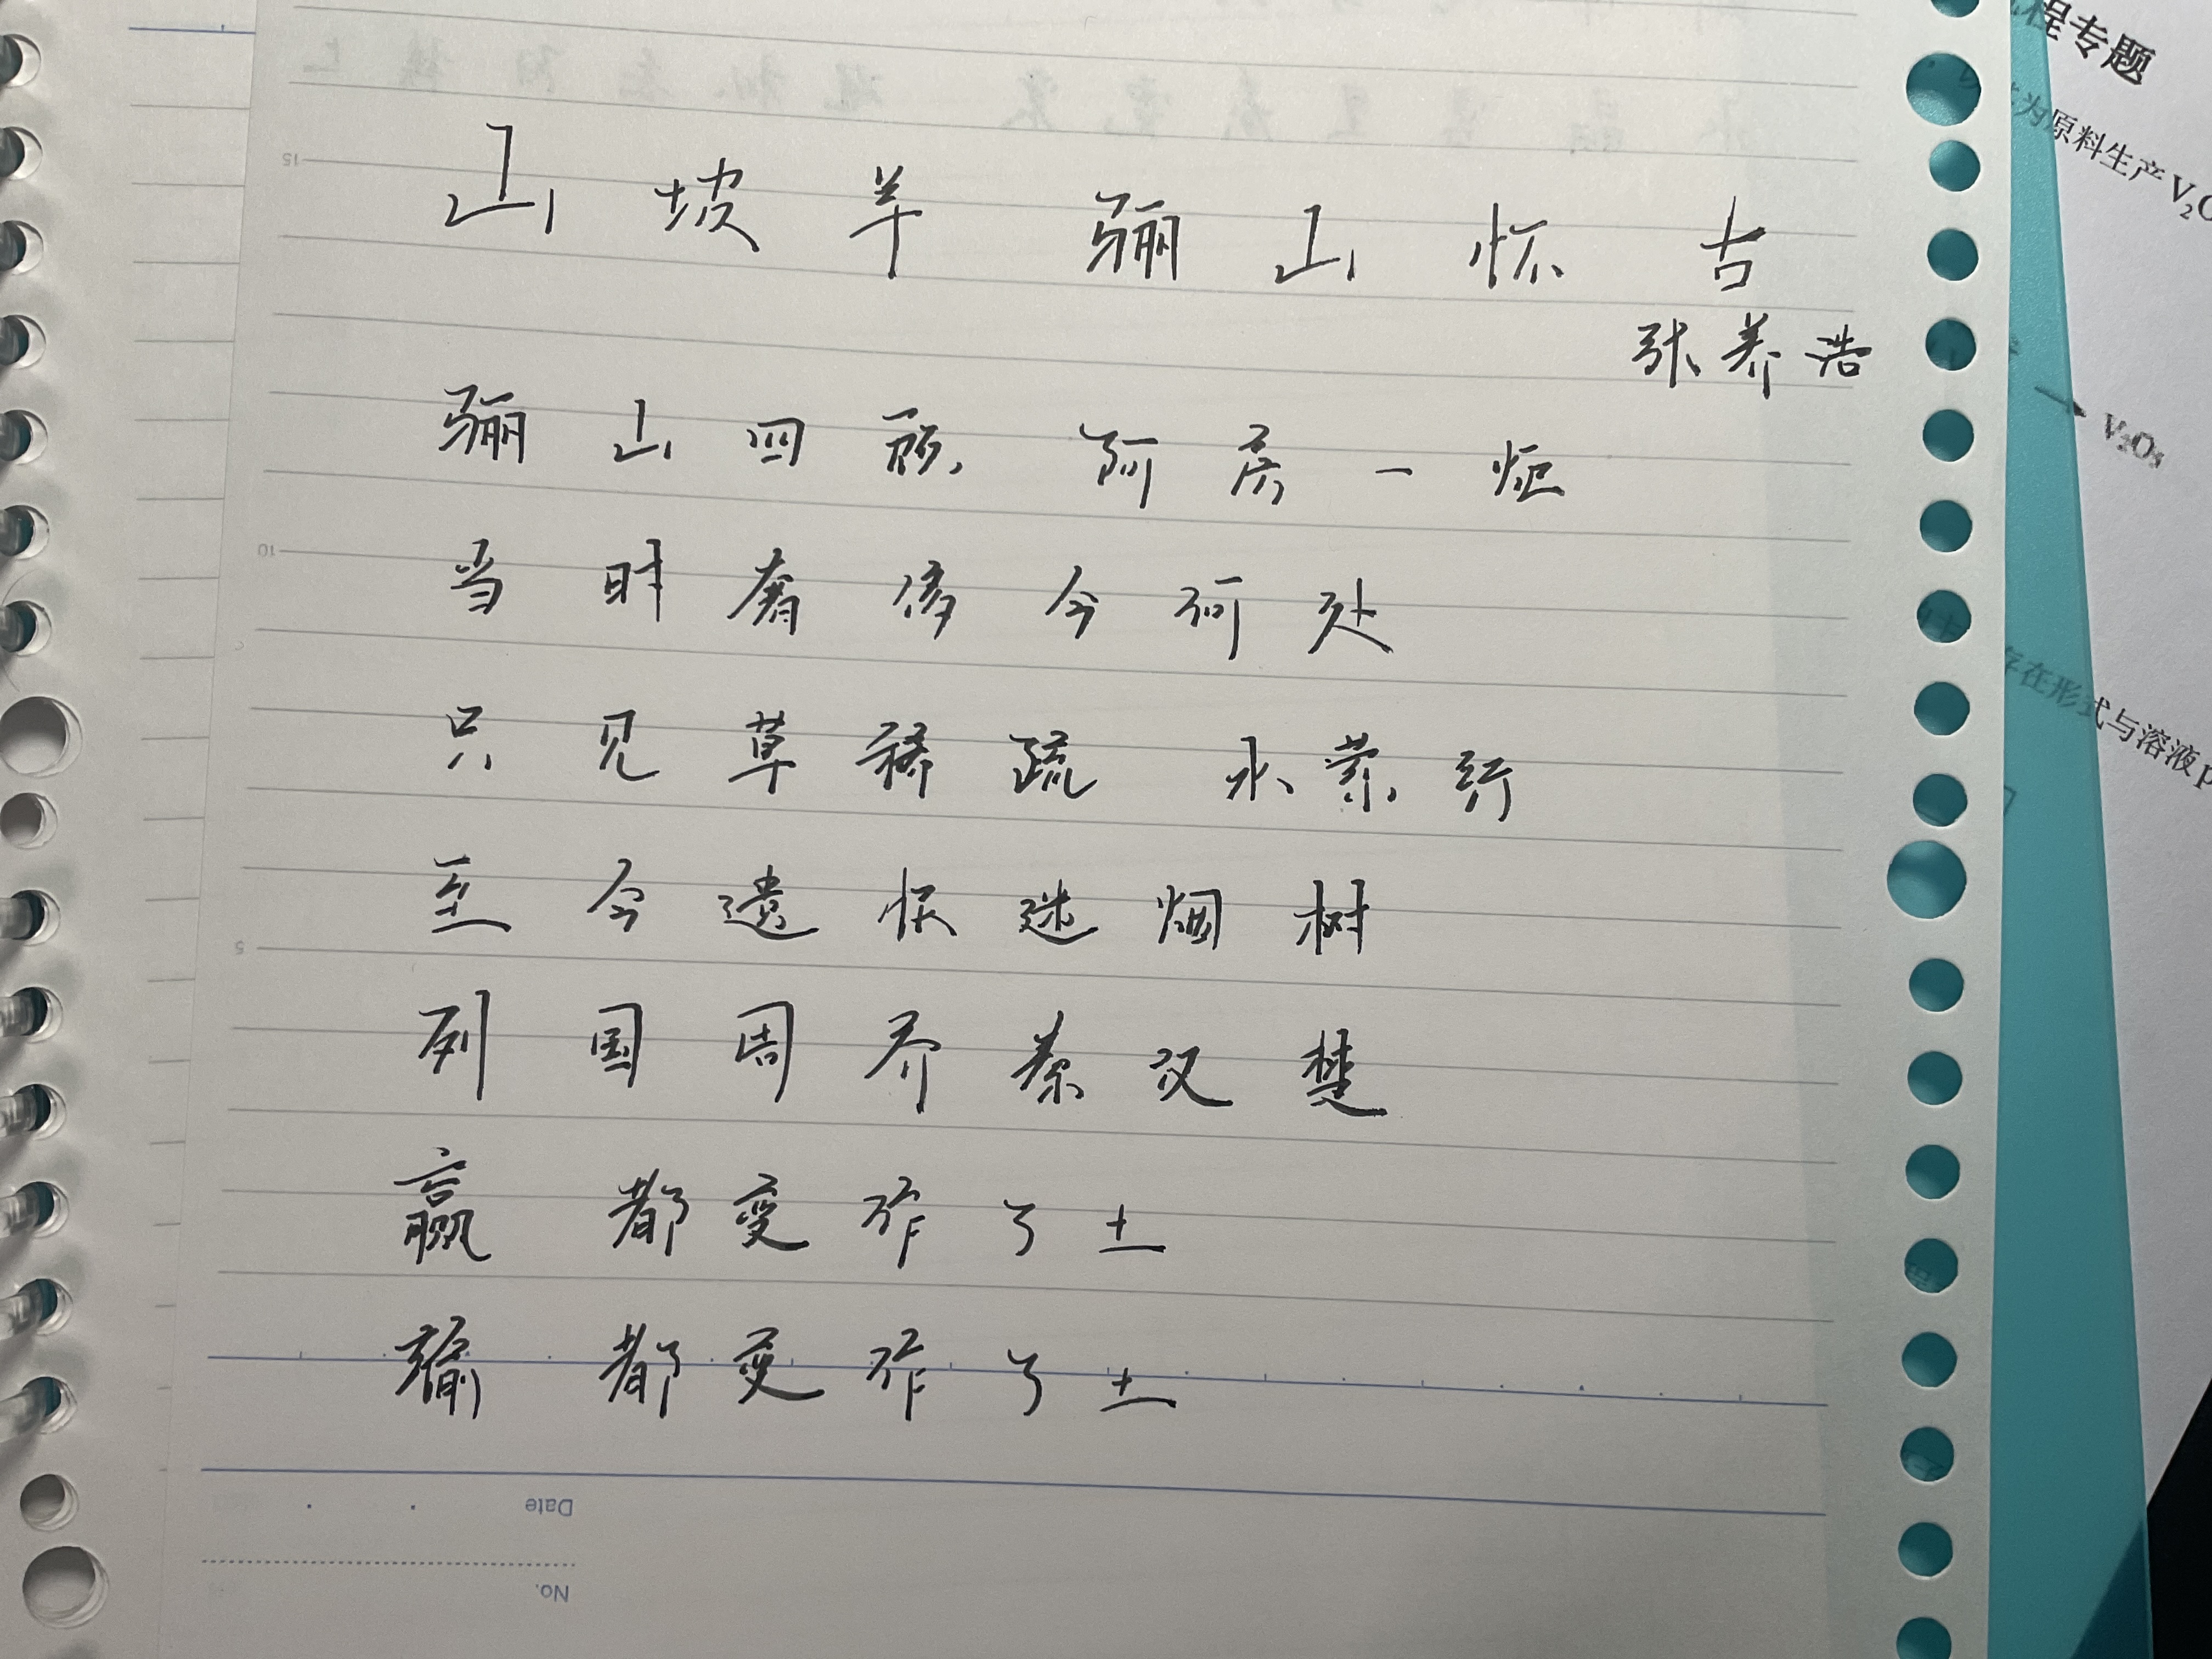 山坡羊 骊山怀古
张养浩
骊山四顾 阿房一炬
当时奢侈今何处
只见草稀疏 水萦纡
至今遗恨迷烟树
列国周齐秦汉楚
赢 都变作了土
输 都变作了土
Date
No.
15
10
5
程专题
为原料生产V₂O
V₂O₅
存在形式与溶液p